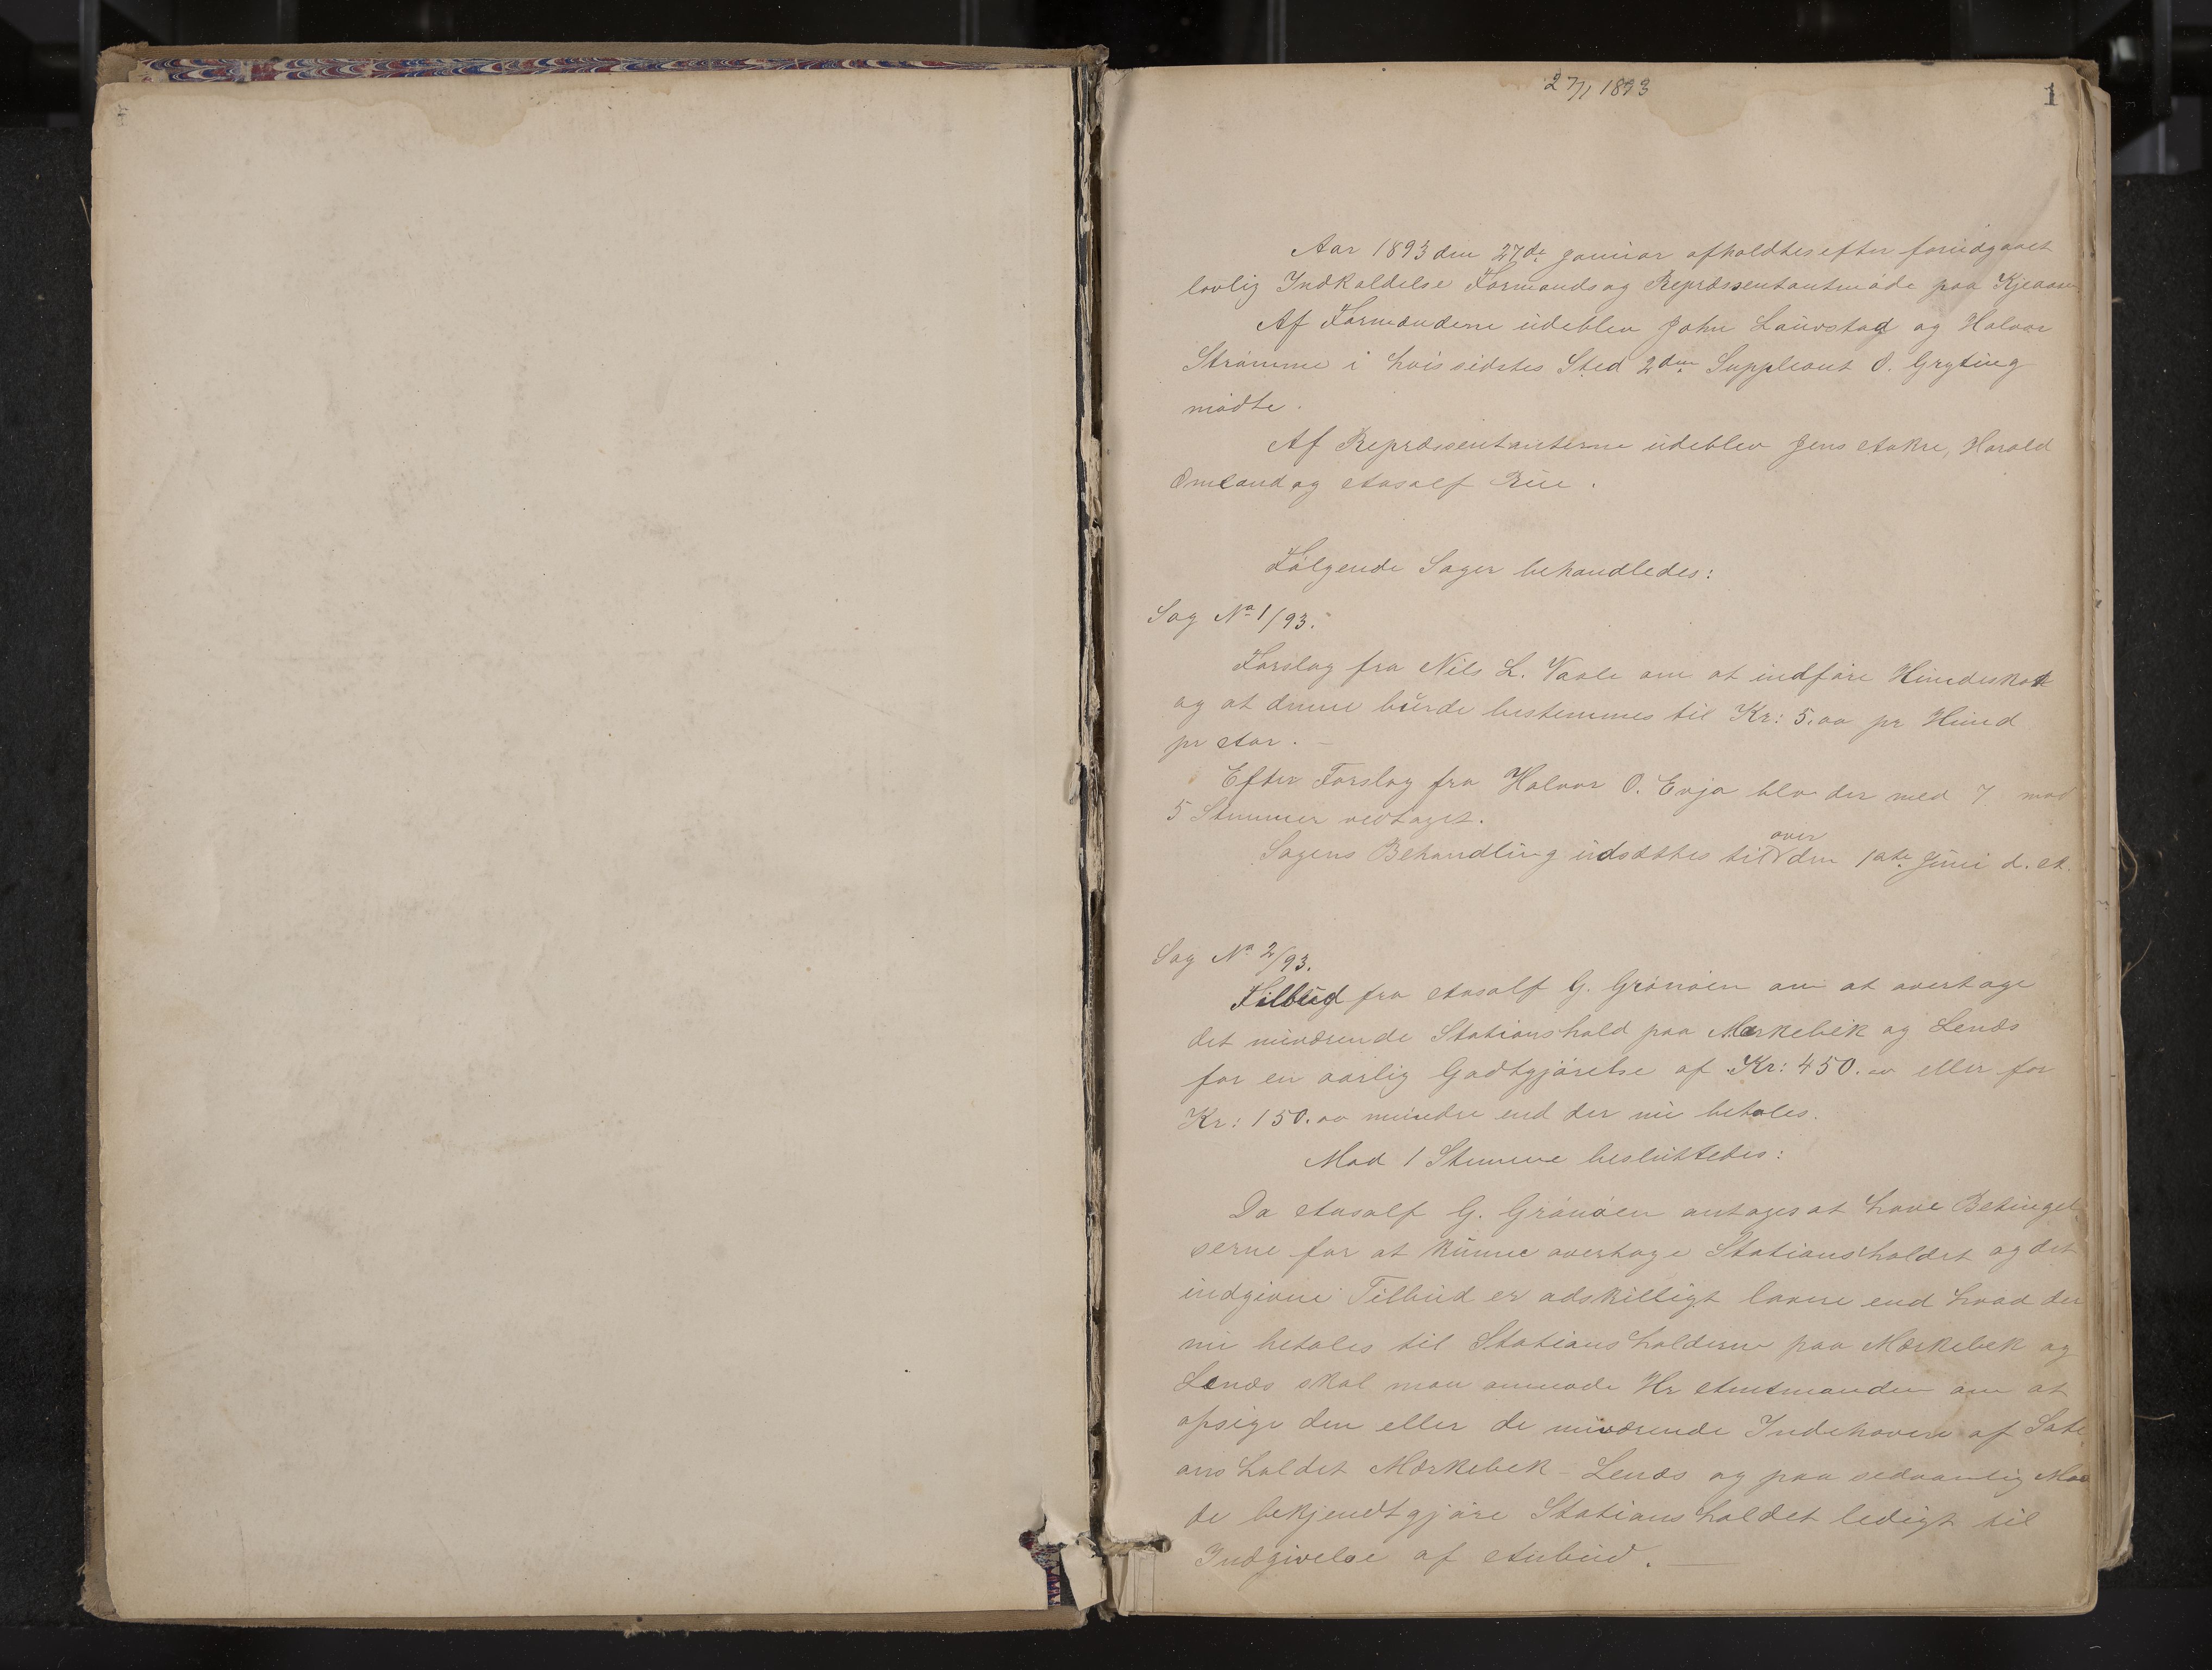 27/1 1893
1
Aar 1893 den 27de Januar afholdtes efter forudgaaet
lovlig Indkaldelse Formands og Repræsentantmøde paa Kjeaasen
Af Formændene udeblev John Lauvstad og Halvor
Strømme i hvis sidstes Sted 2den Suppleant O. Gryting
mødte.
Af Repræsentanterne udeblev Jens Aakre, Harald
Omland og Aasolf Rue.
Følgende Sager behandledes:
Sag No 1/93.
Forslag fra Nils L. Vaale om at indføre Hundeskat
og at denne burde bestemmes til Kr: 5.00 pr Hund
pr Aar. -
Efter Forslag fra Halvor O. Evja blev der med 7 mod
5 Stemmer vedtaget.
Sagens Behandling udsættes til over den 1ste Juni d. A.
Sag No 2/93.
Tilbud fra Aasolf G. Grønøen om at overtage
det nuværende Stationshold paa Mærkebek og Lenæs
for en aarlig Godtgjørelse af Kr: 450.00 eller for
Kr: 150.00 mindre end der nu betales.
Mod 1 Stemme besluttedes:
Da Aasolf G. Grønøen antages at have Betingel
serne for at kunne overtage Stationsholdet og det
indgivne Tilbud er adskilligt lavere end hvad der
nu betales til Stationsholderne paa Mærkebek og
Lenæs skal man anmode Hr Amtmanden om at
opsige den eller de nuværende Indehavere af Sati
onsholdet Mærkebek - Lenæs og paa sedvanlig Maa
de bekjendtgjøre Stationsholdet ledigt til
Indgivelse af Anbud. -